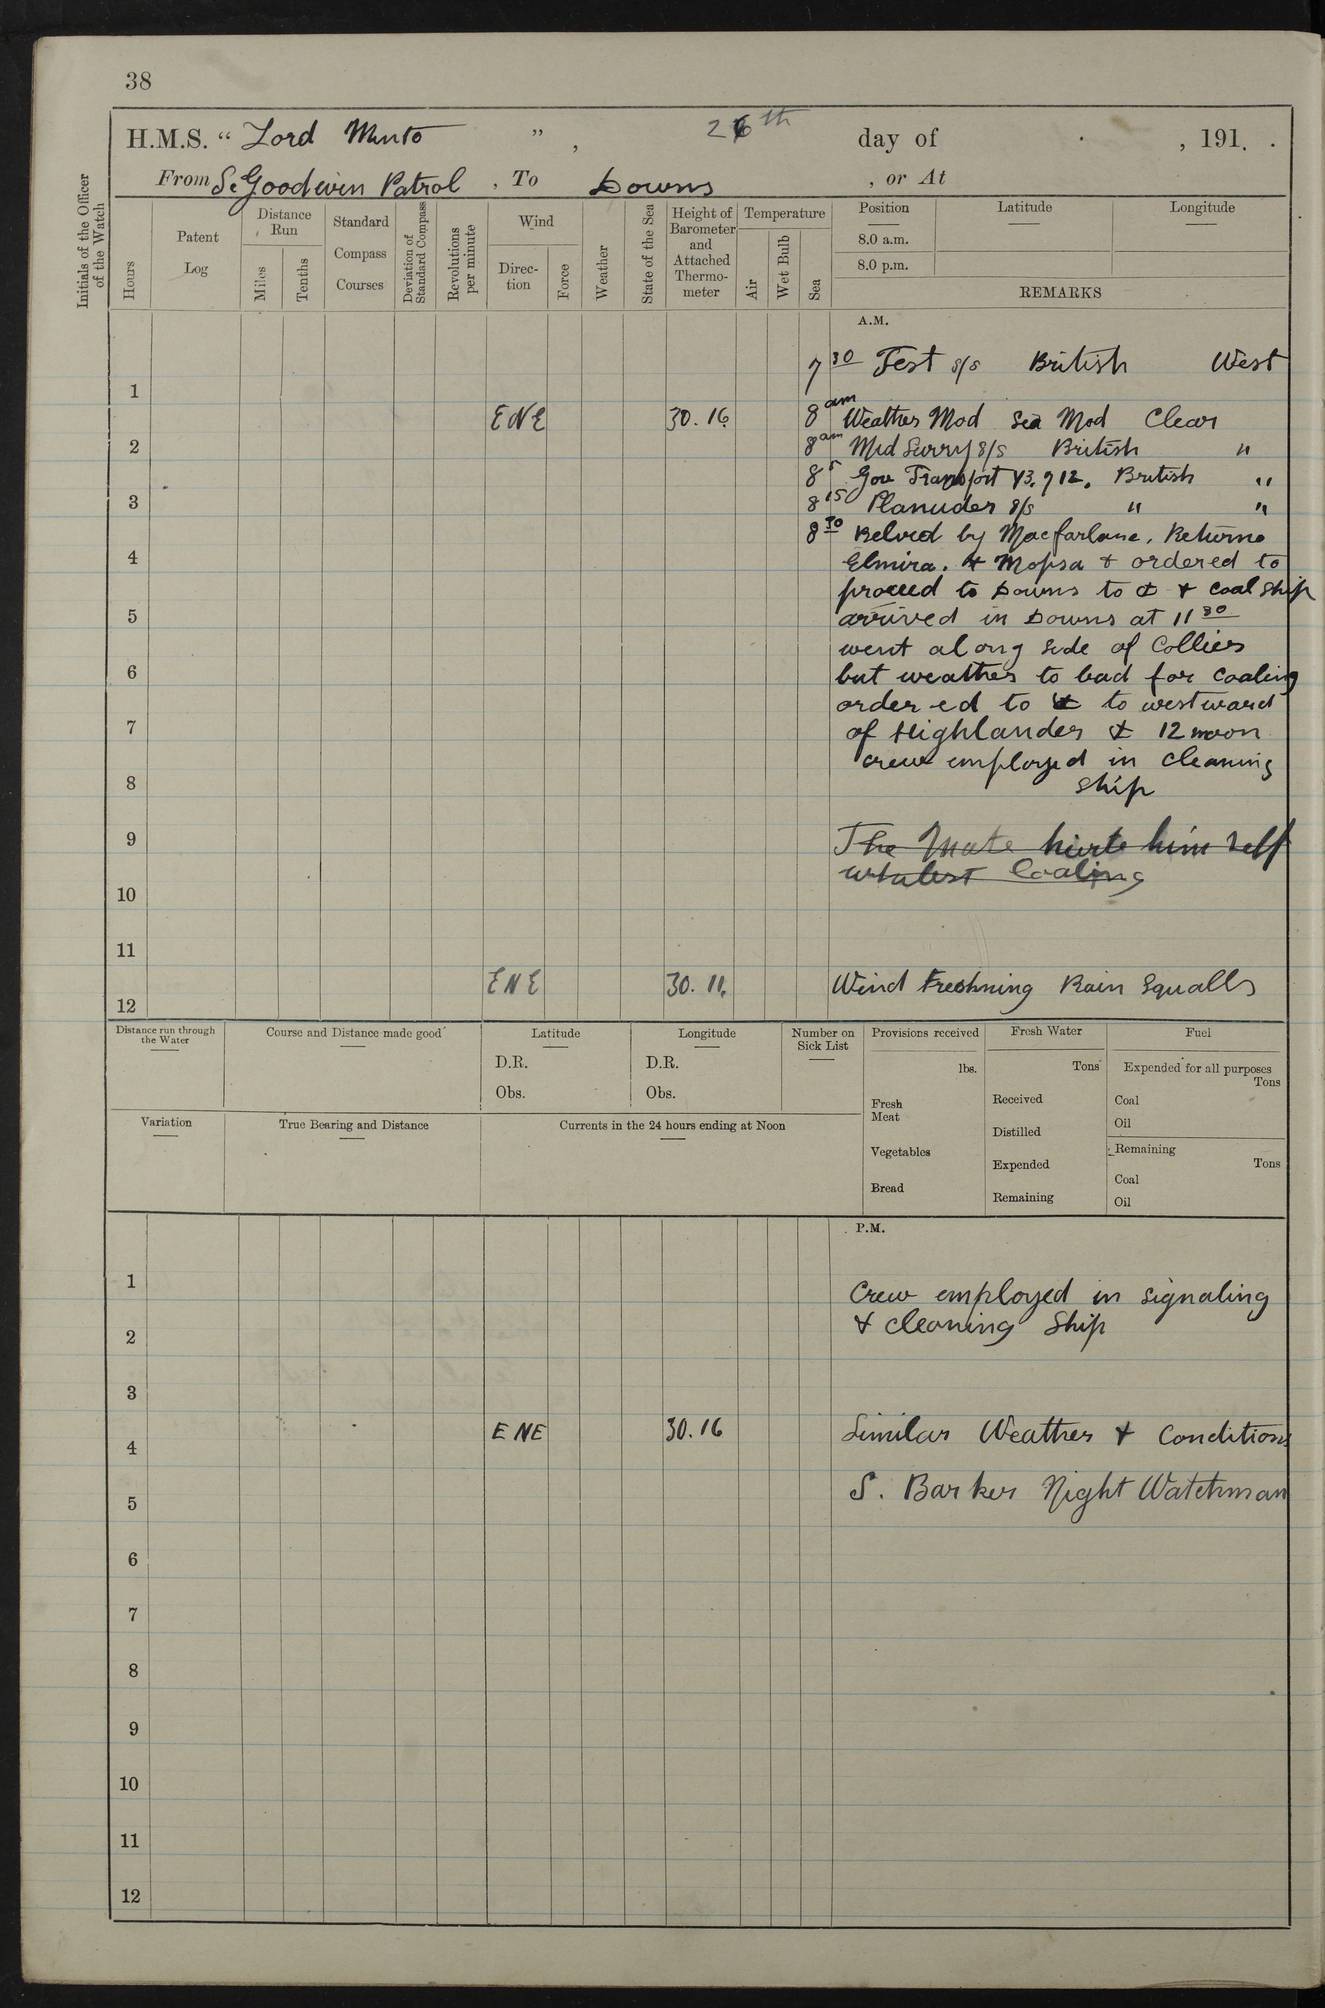 38
H.M.S. “ Lord Minto ” , 26th day of , 191 .
From S. Goodwin Patrol , To Downs , or At
Initials of the Officer of the Watch
Hours
Patent Log
Distance Run
Miles
Tenths
Standard Compass Courses
Deviation of Standard Compass
Revolutions per minute
Wind
Direc-tion
Force
Weather
State of the Sea
Height of Barometer and Attached Thermo-meter
Temperature
Air
Wet Bulb
Sea
Position Latitude Longitude
8.0 a.m.
8.0 p.m.
REMARKS
A.M.
7 30 Fest s/s British West
1
ENE 30.16 8 am Weather Mod Sea Mod Clear
2 8 am Mid Surry s/s British "
8 5 Gov Transport Y3.712. British "
3 8 15 Planudes s/s " "
8 30 Relved by Macfarlane. Returne
4 Elmira. & Mopsa & ordered to
proceed to Downs to ⚓ & coal ship
5 arrived in Downs at 11 30
went along side of Collier
6 but weather to bad for coaling
ordered to ⚓ to westward
7 of Highlander ⚓ 12 noon
crew employed in cleaning
8 ship
9 The Mate hurte him self
whilest Coaling
10
11
ENE 30.11 Wind Freshning Rain Squalls
12
Distance run through the Water
Course and Distance made good
Latitude
D.R.
Obs.
Longitude
D.R.
Obs.
Number on Sick List
Provisions received
lbs.
Fresh Meat
Vegetables
Bread
Fresh Water
Tons
Received
Distilled
Expended
Remaining
Fuel
Expended for all purposes
Tons
Coal
Oil
Remaining
Tons
Coal
Oil
Variation
True Bearing and Distance
Currents in the 24 hours ending at Noon
P.M.
1
Crew employed in signaling
2 & cleaning Ship
3
ENE 30.16 Similar Weather & Conditions
4
S. Barker Night Watchman
5
6
7
8
9
10
11
12